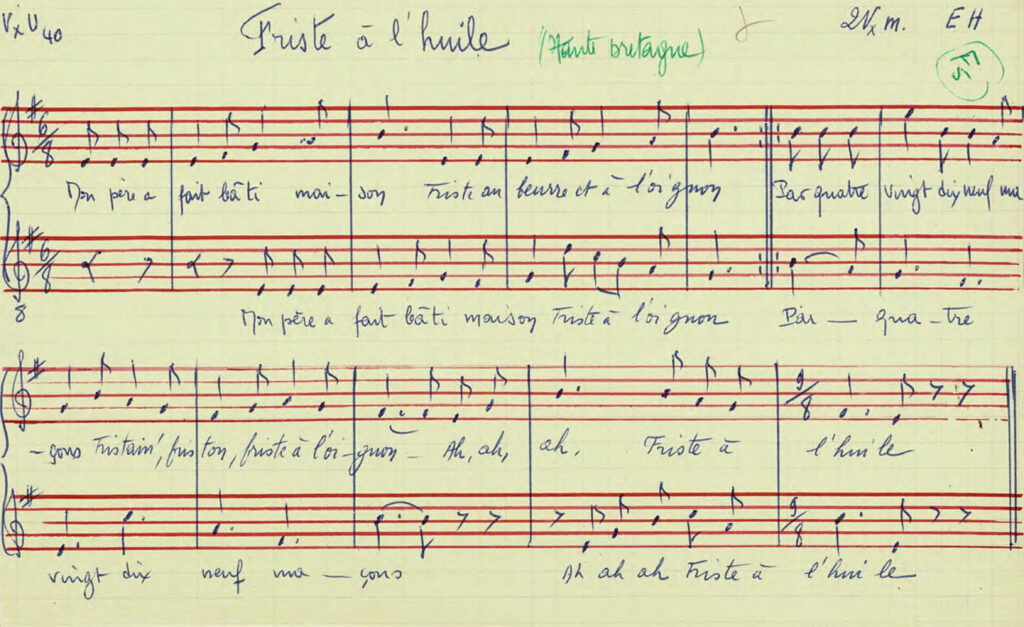 VxU40 Friste à l'huile (Haute bretagne) 2Vx m. E H
F5
6/8 Mon père a fait bâti mai- son Friste au beurre et à l'oignon Par quatre vingt dix neuf ma
6/8
8 Mon père a fait bâti maison Friste à l'oignon Par — qua - tre
- çons Fristain', friston, friste à l'oi - gnon - Ah, ah, ah. Friste à l'huile
9/8
vingt dix neuf ma - çons Ah ah ah Friste à l'huile
9/8